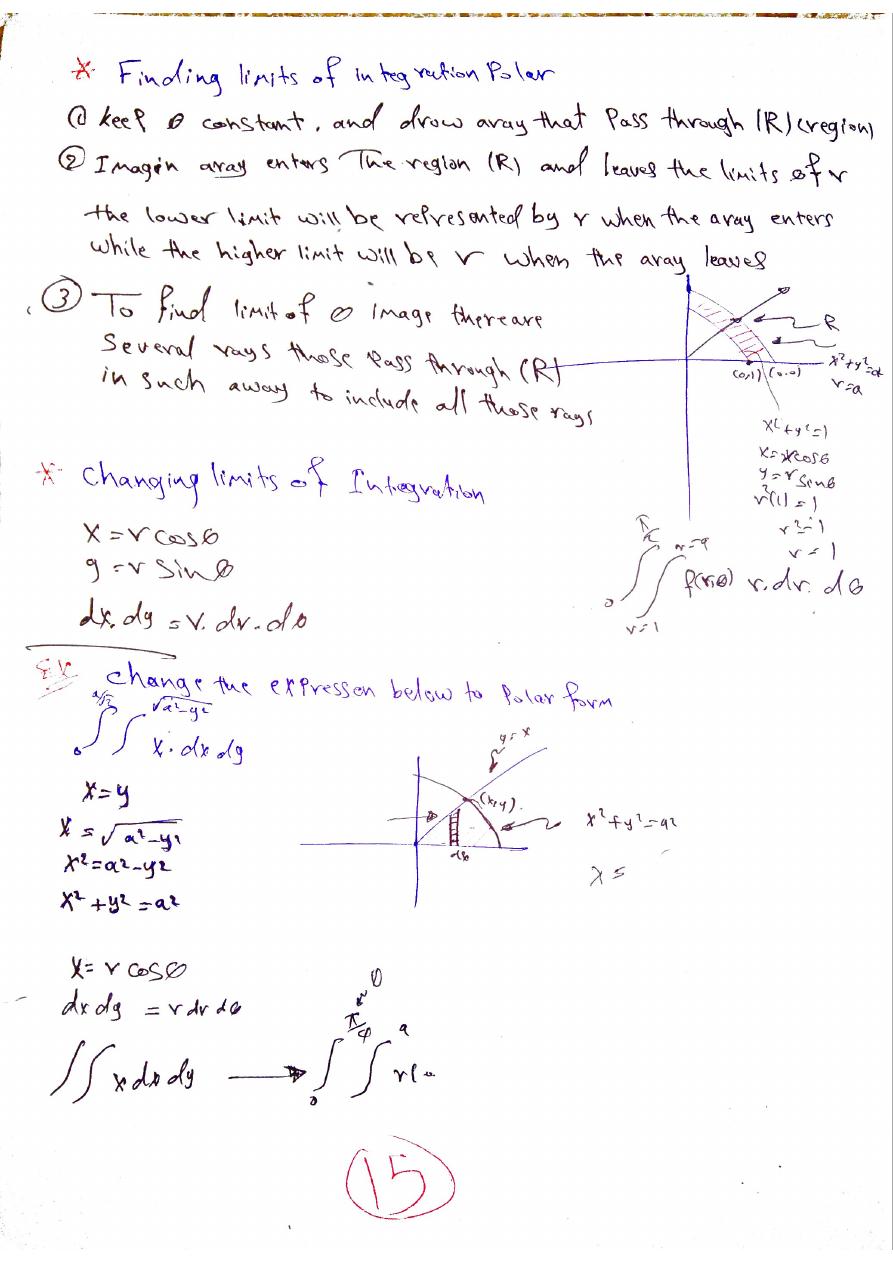 * Finding limits of integration Polar
① keep θ constant, and draw aray that Pass through (R) (region)
② Imagin array enters The region (R) and leaves the limits of r
the lower limit will be represented by r when the aray enters
while the higher limit will be r when the aray leaves
③ To find limit of θ image thereare
Several rays those Pass through (R)
in such away to include all those rays
R
x²+y²=a²
r=a
(0,1)
x²+y²=1
x=rcosθ
y=r sinθ
r²(1)=1
r²=1
r=1
* Changing limits of Integration
x=rcosθ
y=r sinθ
dx.dy=r.dr.dθ
∫∫ f(r,θ) r.dr.dθ
0
r=1
r=a
Ex change the expressen below to Polar form
∫∫ x.dx dy
0
a/√2
√a²-y²
y=x
(x,y).
x²+y²=a²
dx
x=
x=y
x=√a²-y²
x²=a²-y²
x²+y²=a²
x=r cosθ
dx dy = r dr dθ
θ
∫∫ x dx dy → ∫∫ r(
0
π/4
a
15